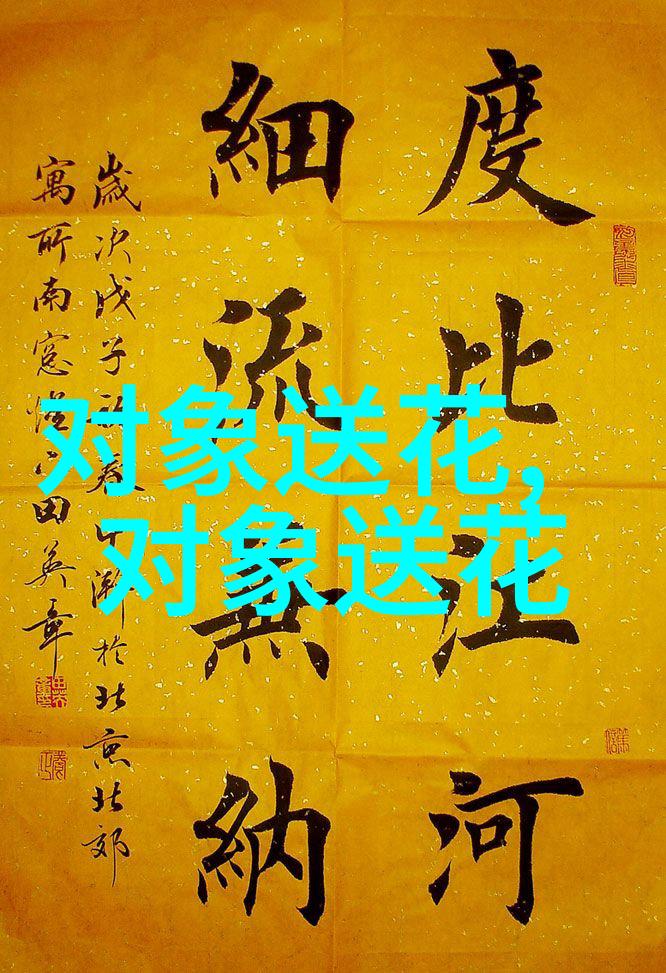 对象送花，
对象送花
度比江河
細流無納
歲次戊子初春上澣於北京北郊
寓所南窓燈下田英章